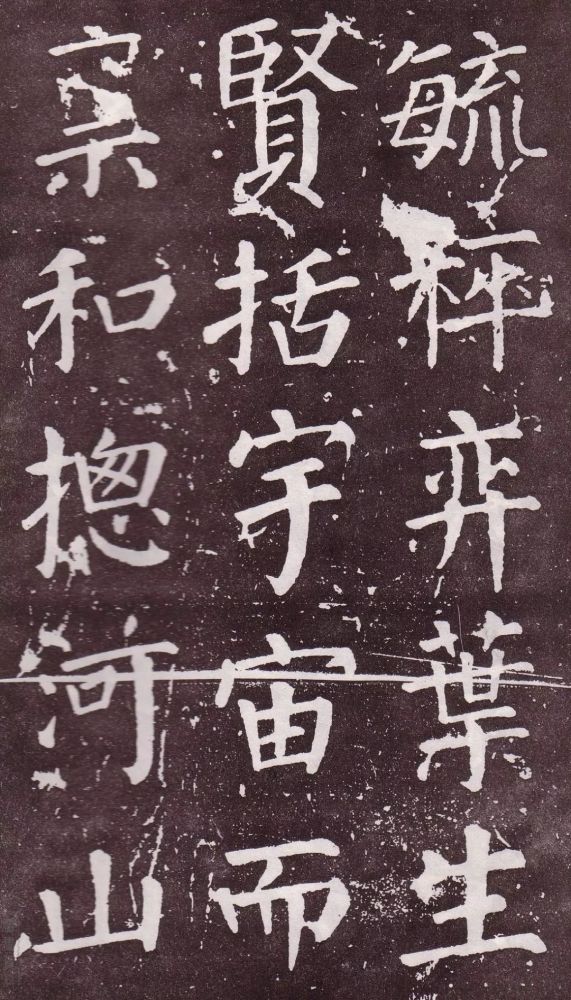 毓粹弈葉生
賢括宇宙而
禀和揔河山